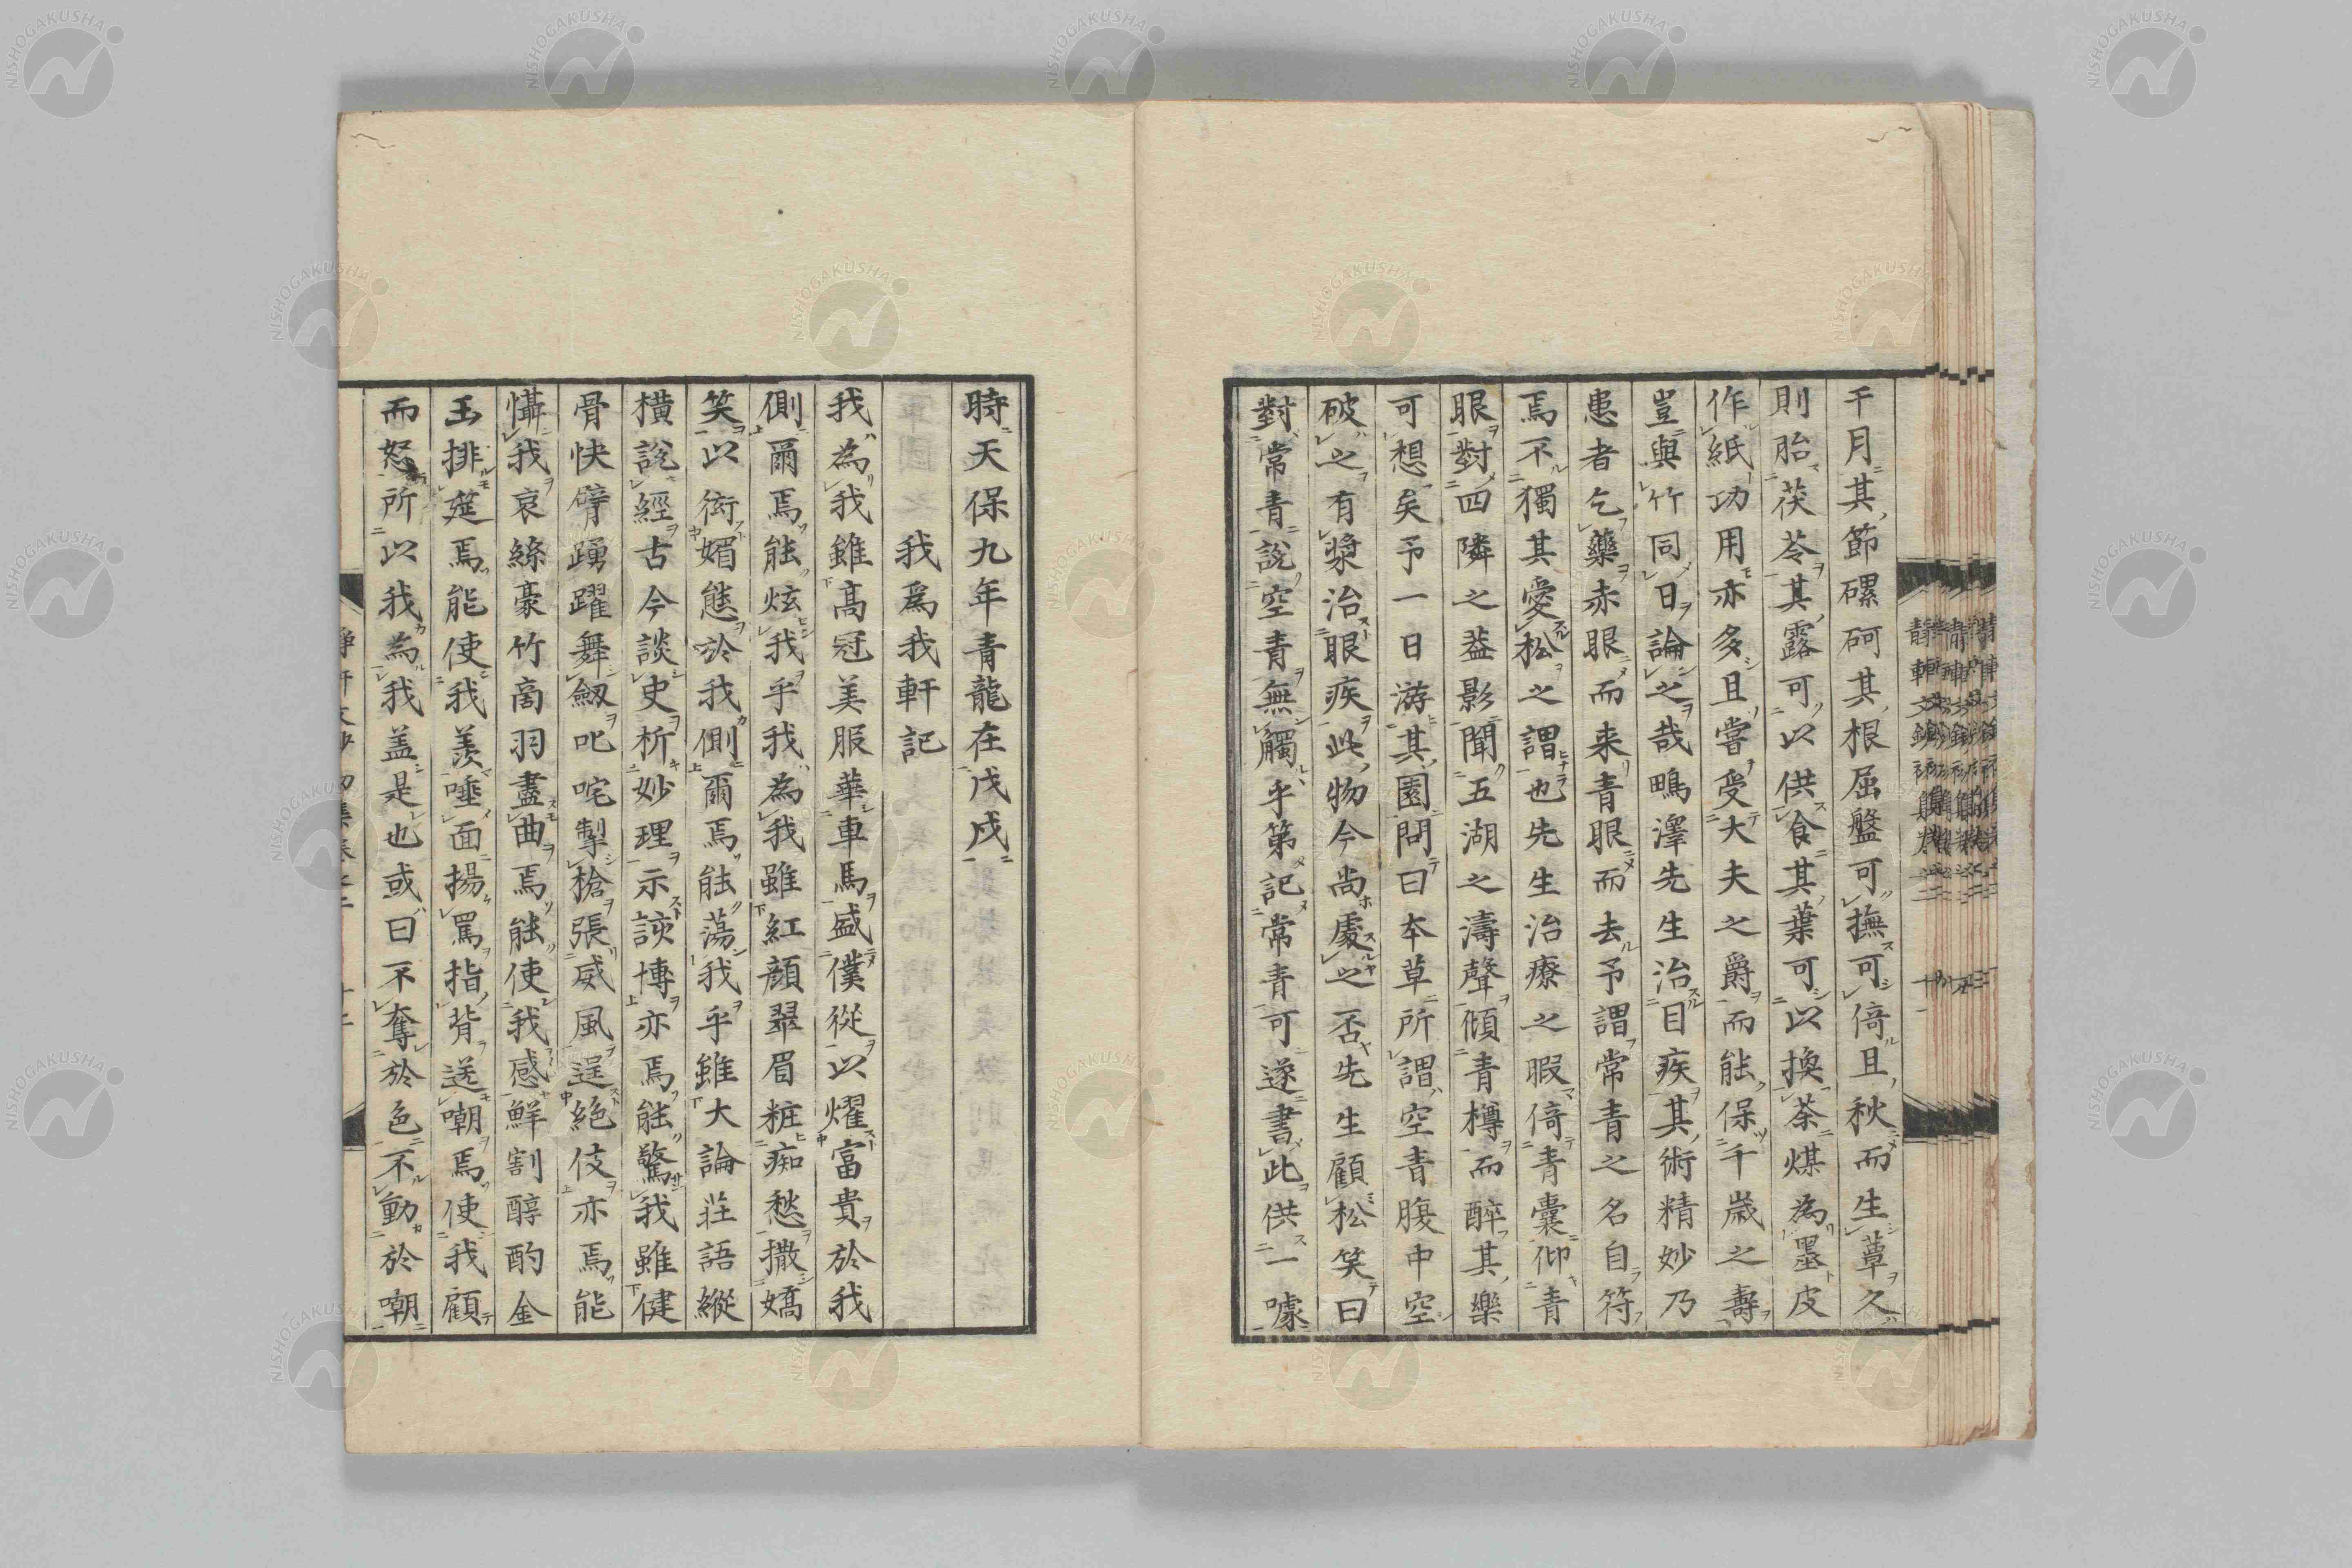 千月其節磥砢其根屈盤可撫可倚且秋而生蕈久
則胎茯苓其露可以供食其葉可以換茶煤為墨皮
作紙功用亦多且嘗受大夫之爵而能保千歲之壽
豈與竹同日論之哉鴨澤先生治目疾其術精妙乃
患者乞藥赤眼而来青眼而去予謂常青之名自符
焉不獨其愛松之謂也先生治療之暇倚青囊仰青
眼對四隣之葢影聞五湖之濤聲傾青樽而醉其樂
可想矣予一日游其園問曰本草所謂空青腹中空
破之有漿治眼疾此物今尚處之否先生顧松笑曰
對常青說空青無觸乎第記常青可遂書此供一噱
時天保九年青龍在戊戌
我為我軒記
我為我雖高冠美服華車馬盛僕從以燿富貴於我
側爾焉能炫我乎我為我雖紅顏翠眉粧痴愁撒嬌
笑以衒媚態於我側爾焉能蕩我乎雖大論莊語縱
橫說經古今談史析妙理示該博亦焉能驚我雖健
骨快臂踴躍舞劔叱咤掣槍張威風逞絕伎亦焉能
懾我哀絲豪竹商羽盡曲焉能使我感鮮割醇酌金
玉排筵焉能使我羨唾面揚罵指背送嘲焉使我顧
而怒所以我為我盖是也或曰不奪於色不動於嘲